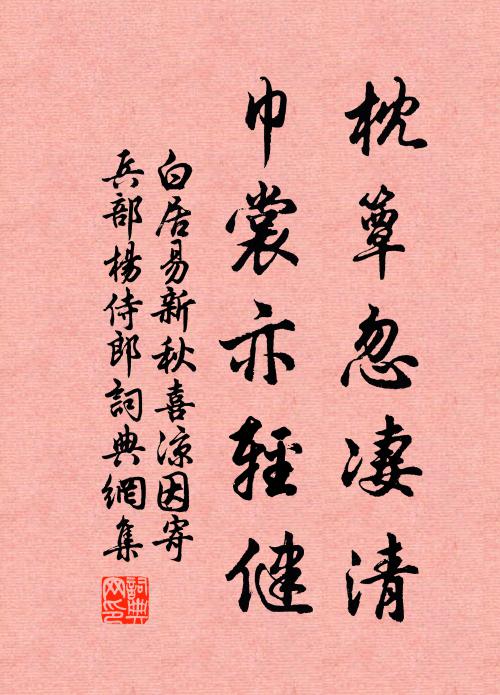 枕簟忽凄清
巾裳亦輕健
白居易新秋喜涼因寄
兵部楊侍郎詞典網集
詞典
网印